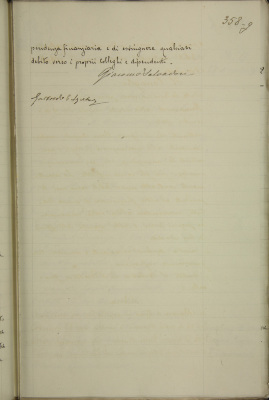 358-g
prudenza finanziaria e di estinguere qualsiasi
debito verso i proprii colleghi e dipendenti. -
Giacomo Salvadori